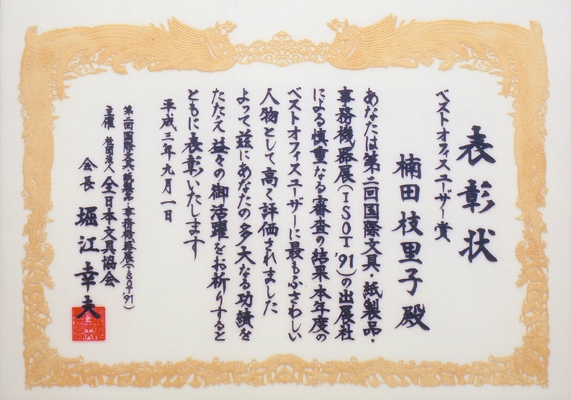 表彰状
ベストオフィスユーザー賞
楠田枝里子殿
あなたは第二回国際文具・紙製品・
事務機器展(ISOT'91)の出展社
による慎重なる審査の結果・本年度の
ベストオフィスユーザーに最もふさわしい
人物として高く評価されました
よって茲にあなたの多大なる功績を
たたえ益々の御活躍をお祈りすると
ともに表彰いたします
平成三年九月一日
第二回国際文具・紙製品・事務機器展(ISOT'91)
主催 社団法人 全日本文具協会
会長 堀江幸夫